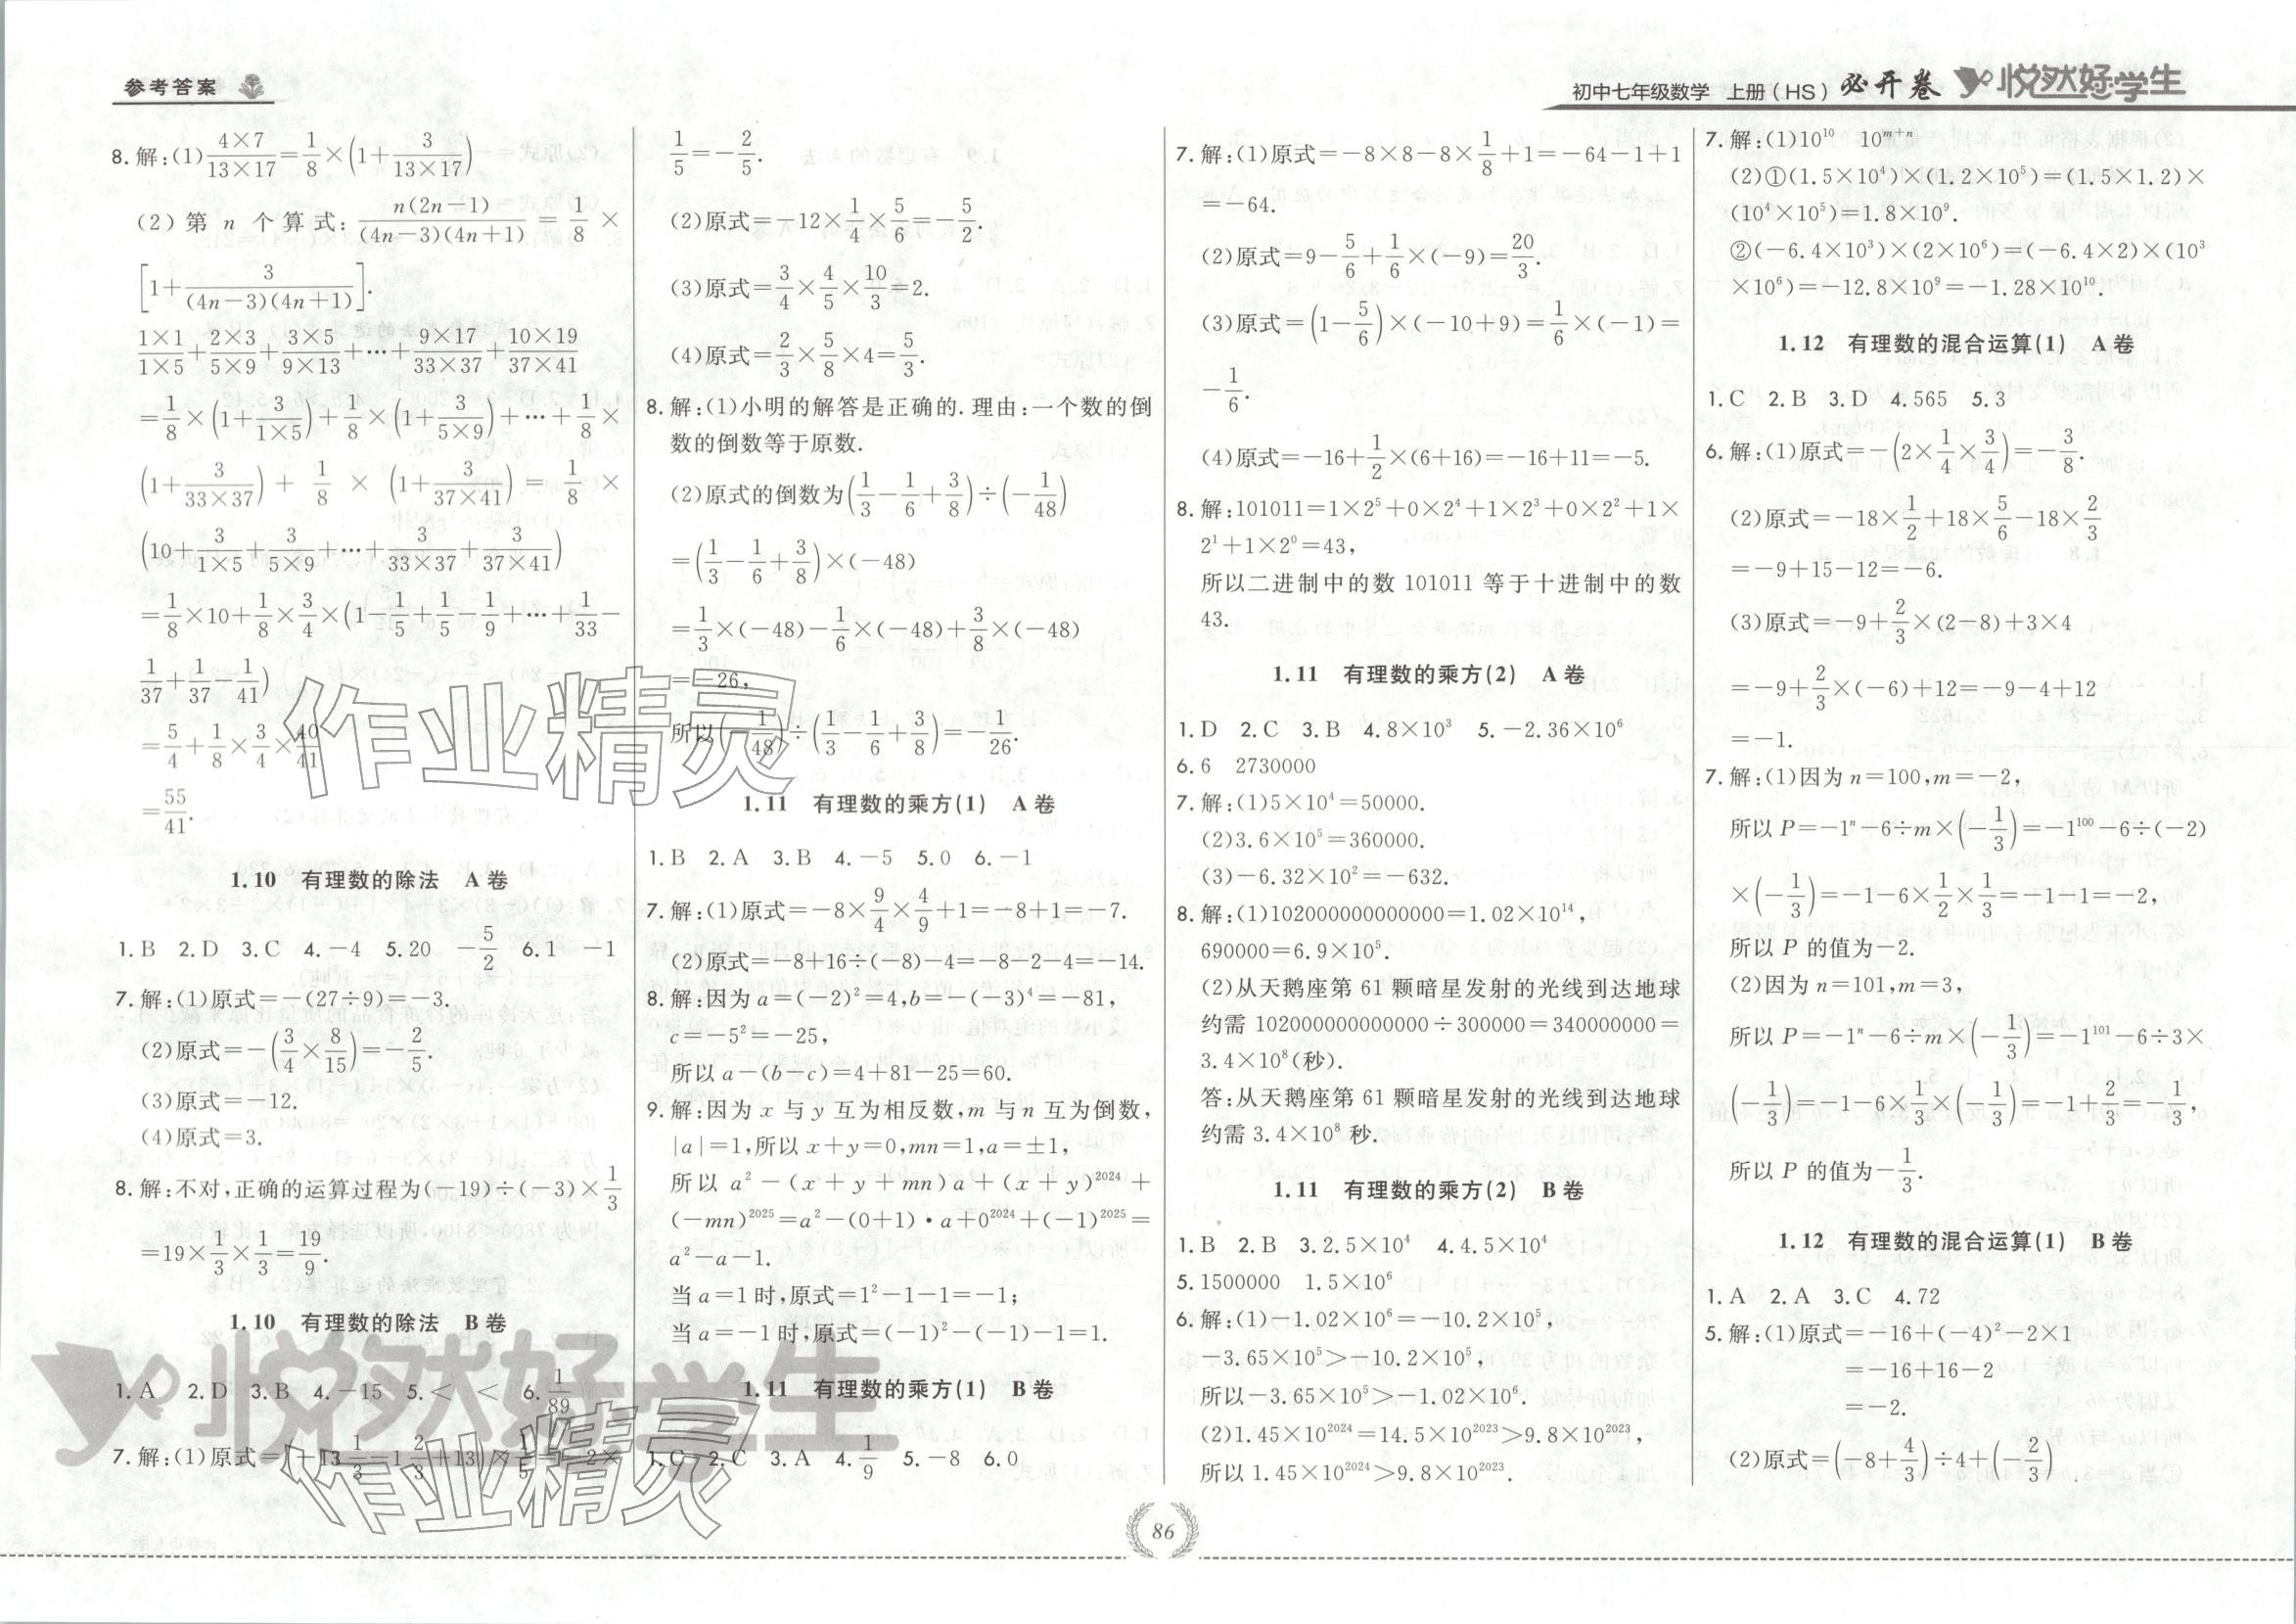 参考答案
初中七年级数学 上册(HS) 必开卷 悦然好学生
8. 解:(1)\frac{4×7}{13×17}=\frac{1}{8}×(1+\frac{3}{13×17})
(2)第 n 个算式:\frac{n(2n-1)}{(4n-3)(4n+1)}=\frac{1}{8}×
[1+\frac{3}{(4n-3)(4n+1)}].
\frac{1×1}{1×5}+\frac{2×3}{5×9}+\frac{3×5}{9×13}+…+\frac{9×17}{33×37}+\frac{10×19}{37×41}
=\frac{1}{8}×(1+\frac{3}{1×5})+\frac{1}{8}×(1+\frac{3}{5×9})+…+\frac{1}{8}×
(1+\frac{3}{33×37})+\frac{1}{8}×(1+\frac{3}{37×41})=\frac{1}{8}×
(10+\frac{3}{1×5}+\frac{3}{5×9}+…+\frac{3}{33×37}+\frac{3}{37×41})
=\frac{1}{8}×10+\frac{1}{8}×\frac{3}{4}×(1-\frac{1}{5}+\frac{1}{5}-\frac{1}{9}+…+\frac{1}{33}-
\frac{1}{37}+\frac{1}{37}-\frac{1}{41})
=\frac{5}{4}+\frac{1}{8}×\frac{3}{4}×\frac{40}{41}
=\frac{55}{41}.
1.10 有理数的除法 A卷
1. B 2. D 3. C 4. -4 5. 20 -\frac{5}{2} 6. 1 -1
7. 解:(1)原式=-(27÷9)=-3.
(2)原式=-(\frac{3}{4}×\frac{8}{15})=-\frac{2}{5}.
(3)原式=-12.
(4)原式=3.
8. 解:不对,正确的运算过程为(-19)÷(-3)×\frac{1}{3}
=19×\frac{1}{3}×\frac{1}{3}=\frac{19}{9}.
1.10 有理数的除法 B卷
1. A 2. D 3. B 4. -15 5. < < 6. \frac{1}{89}
7. 解:(1)原式=
\frac{1}{5}=-\frac{2}{5}.
(2)原式=-12×\frac{1}{4}×\frac{5}{6}=-\frac{5}{2}.
(3)原式=\frac{3}{4}×\frac{4}{5}×\frac{10}{3}=2.
(4)原式=\frac{2}{3}×\frac{5}{8}×4=\frac{5}{3}.
8. 解:(1)小明的解答是正确的.理由:一个数的倒
数的倒数等于原数.
(2)原式的倒数为(\frac{1}{3}-\frac{1}{6}+\frac{3}{8})÷(-\frac{1}{48})
=(\frac{1}{3}-\frac{1}{6}+\frac{3}{8})×(-48)
=\frac{1}{3}×(-48)-\frac{1}{6}×(-48)+\frac{3}{8}×(-48)
=-26,
所以(-\frac{1}{48})÷(\frac{1}{3}-\frac{1}{6}+\frac{3}{8})=-\frac{1}{26}.
1.11 有理数的乘方(1) A卷
1. B 2. A 3. B 4. -5 5. 0 6. -1
7. 解:(1)原式=-8×\frac{9}{4}×\frac{4}{9}+1=-8+1=-7.
(2)原式=-8+16÷(-8)-4=-8-2-4=-14.
8. 解:因为 a=(-2)²=4,b=-(-3)⁴=-81,
c=-5²=-25,
所以 a-(b-c)=4+81-25=60.
9. 解:因为 x 与 y 互为相反数,m 与 n 互为倒数,
|a|=1,所以 x+y=0,mn=1,a=±1,
所以 a²-(x+y+mn)a+(x+y)²⁰²⁴+
(-mn)²⁰²⁵=a²-(0+1)·a+0²⁰²⁴+(-1)²⁰²⁵=
a²-a-1.
当 a=1 时,原式=1²-1-1=-1;
当 a=-1 时,原式=(-1)²-(-1)-1=1.
1.11 有理数的乘方(1) B卷
1. C 2. C 3. A 4. \frac{1}{9} 5. -8 6. 0
7. 解:(1)原式=-8×8-8×\frac{1}{8}+1=-64-1+1
=-64.
(2)原式=9-\frac{5}{6}+\frac{1}{6}×(-9)=\frac{20}{3}.
(3)原式=(1-\frac{5}{6})×(-10+9)=\frac{1}{6}×(-1)=
-\frac{1}{6}.
(4)原式=-16+\frac{1}{2}×(6+16)=-16+11=-5.
8. 解:101011=1×2⁵+0×2⁴+1×2³+0×2²+1×
2¹+1×2⁰=43,
所以二进制中的数 101011 等于十进制中的数
43.
1.11 有理数的乘方(2) A卷
1. D 2. C 3. B 4. 8×10³ 5. -2.36×10⁶
6. 6 2730000
7. 解:(1)5×10⁴=50000.
(2)3.6×10⁵=360000.
(3)-6.32×10²=-632.
8. 解:(1)102000000000000=1.02×10¹⁴,
690000=6.9×10⁵.
(2)从天鹅座第 61 颗暗星发射的光线到达地球
约需 102000000000000÷300000=340000000=
3.4×10⁸(秒).
答:从天鹅座第 61 颗暗星发射的光线到达地球
约需 3.4×10⁸ 秒.
1.11 有理数的乘方(2) B卷
1. B 2. B 3. 2.5×10⁴ 4. 4.5×10⁴
5. 1500000 1.5×10⁶
6. 解:(1)-1.02×10⁶=-10.2×10⁵,
-3.65×10⁵>-10.2×10⁵,
所以-3.65×10⁵>-1.02×10⁶.
(2)1.45×10²⁰²⁴=14.5×10²⁰²³>9.8×10²⁰²³,
所以 1.45×10²⁰²⁴>9.8×10²⁰²³.
7. 解:(1)10¹⁰ 10ᵐ⁺ⁿ
(2)①(1.5×10⁴)×(1.2×10⁵)=(1.5×1.2)×
(10⁴×10⁵)=1.8×10⁹.
②(-6.4×10³)×(2×10⁶)=(-6.4×2)×(10³
×10⁶)=-12.8×10⁹=-1.28×10¹⁰.
1.12 有理数的混合运算(1) A卷
1. C 2. B 3. D 4. 565 5. 3
6. 解:(1)原式=-(2×\frac{1}{4}×\frac{3}{4})=-\frac{3}{8}.
(2)原式=-18×\frac{1}{2}+18×\frac{5}{6}-18×\frac{2}{3}
=-9+15-12=-6.
(3)原式=-9+\frac{2}{3}×(2-8)+3×4
=-9+\frac{2}{3}×(-6)+12=-9-4+12
=-1.
7. 解:(1)因为 n=100,m=-2,
所以 P=-1ⁿ-6÷m×(-\frac{1}{3})=-1¹⁰⁰-6÷(-2)
×(-\frac{1}{3})=-1-6×\frac{1}{2}×\frac{1}{3}=-1-1=-2,
所以 P 的值为-2.
(2)因为 n=101,m=3,
所以 P=-1ⁿ-6÷m×(-\frac{1}{3})=-1¹⁰¹-6÷3×
(-\frac{1}{3})=-1-6×\frac{1}{3}×(-\frac{1}{3})=-1+\frac{2}{3}=-\frac{1}{3},
所以 P 的值为-\frac{1}{3}.
1.12 有理数的混合运算(1) B卷
1. A 2. A 3. C 4. 72
5. 解:(1)原式=-16+(-4)²-2×1
=-16+16-2
=-2.
(2)原式=(-8+\frac{4}{3})÷4+(-\frac{2}{3}).
86
作业精灵
作业精灵
悦然好学生